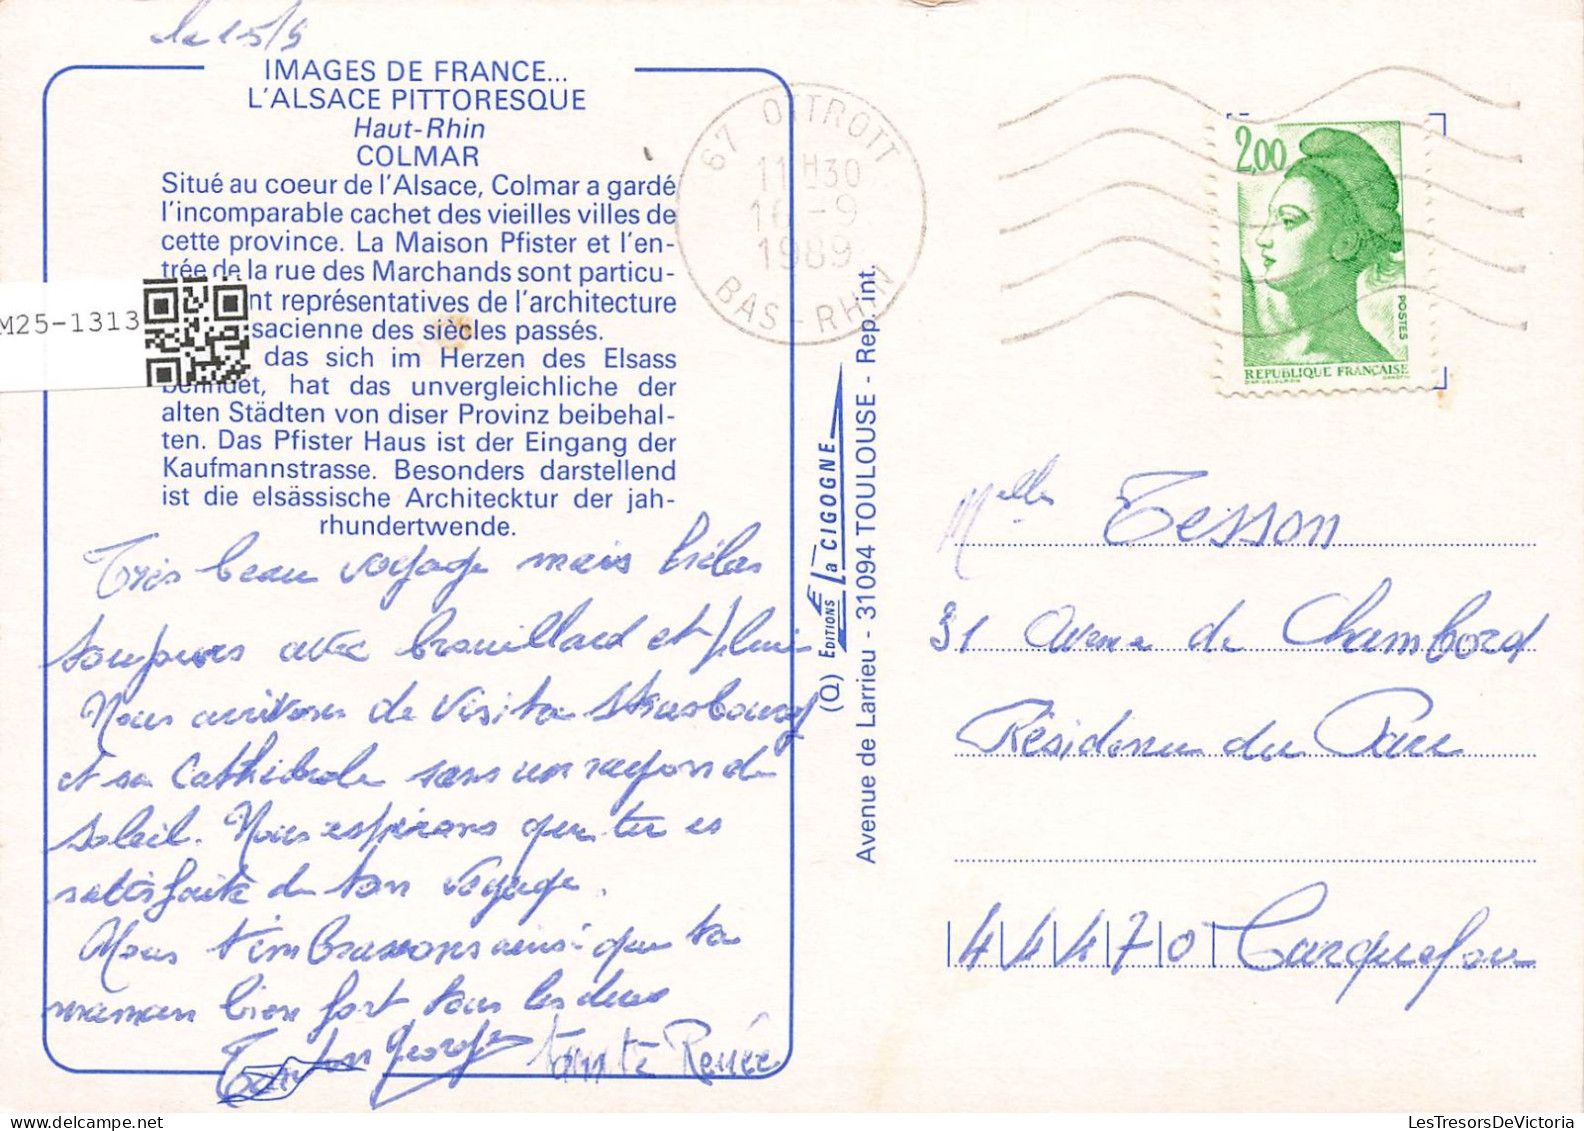 le 15/9
IMAGES DE FRANCE...
L'ALSACE PITTORESQUE
Haut-Rhin
COLMAR
Situé au coeur de l'Alsace, Colmar a gardé
l'incomparable cachet des vieilles villes de
cette province. La Maison Pfister et l'en-
trée de la rue des Marchands sont particu-
nt représentatives de l'architecture
sacienne des siècles passés.
das sich im Herzen des Elsass
befindet, hat das unvergleichliche der
alten Städten von diser Provinz beibehal-
ten. Das Pfister Haus ist der Eingang der
Kaufmannstrasse. Besonders darstellend
ist die elsässische Architecktur der jah-
rhundertwende.
M25-1313
Très beau voyage mais hélas
toujours avec brouillard et pluie
Nous arrivons de visiter Strasbourg
et sa Cathédrale sans un rayon de
soleil. Nous espérons que tu es
satisfaite de ton voyage.
Nous t'embrassons ainsi que ta
maman bien fort tous les deux
Tonton Georges Tante Renée
67 OTTROTT
11H30
16-9
1989
BAS-RHIN
(Q) EDITIONS La CIGOGNE
Avenue de Larrieu - 31094 TOULOUSE - Rep. int.
2,00
POSTES
REPUBLIQUE FRANÇAISE
Melle Tesson
31 Avenue de Chambord
Résidence du Parc
44470 Carquefou
LesTresorsDeVictoria